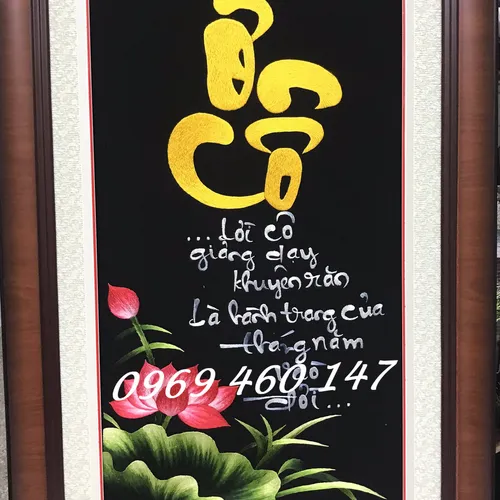 Cô
... Lời cô
giảng dạy
khuyên răn
Là hành trang của
tháng năm
0969 460 147
đời ...